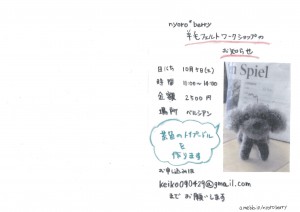 nyoro*berry
羊毛フェルトワークショップの
お知らせ
in Spiel
日にち 10月5日(水)
時間 11:00〜14:00
金額 2500円
場所 ペルシアン
茶色のトイプードル
を
作ります
お申し込みは
keiko090929@gmail.com
まで お願いします
ameblo.jp/nyoroberry